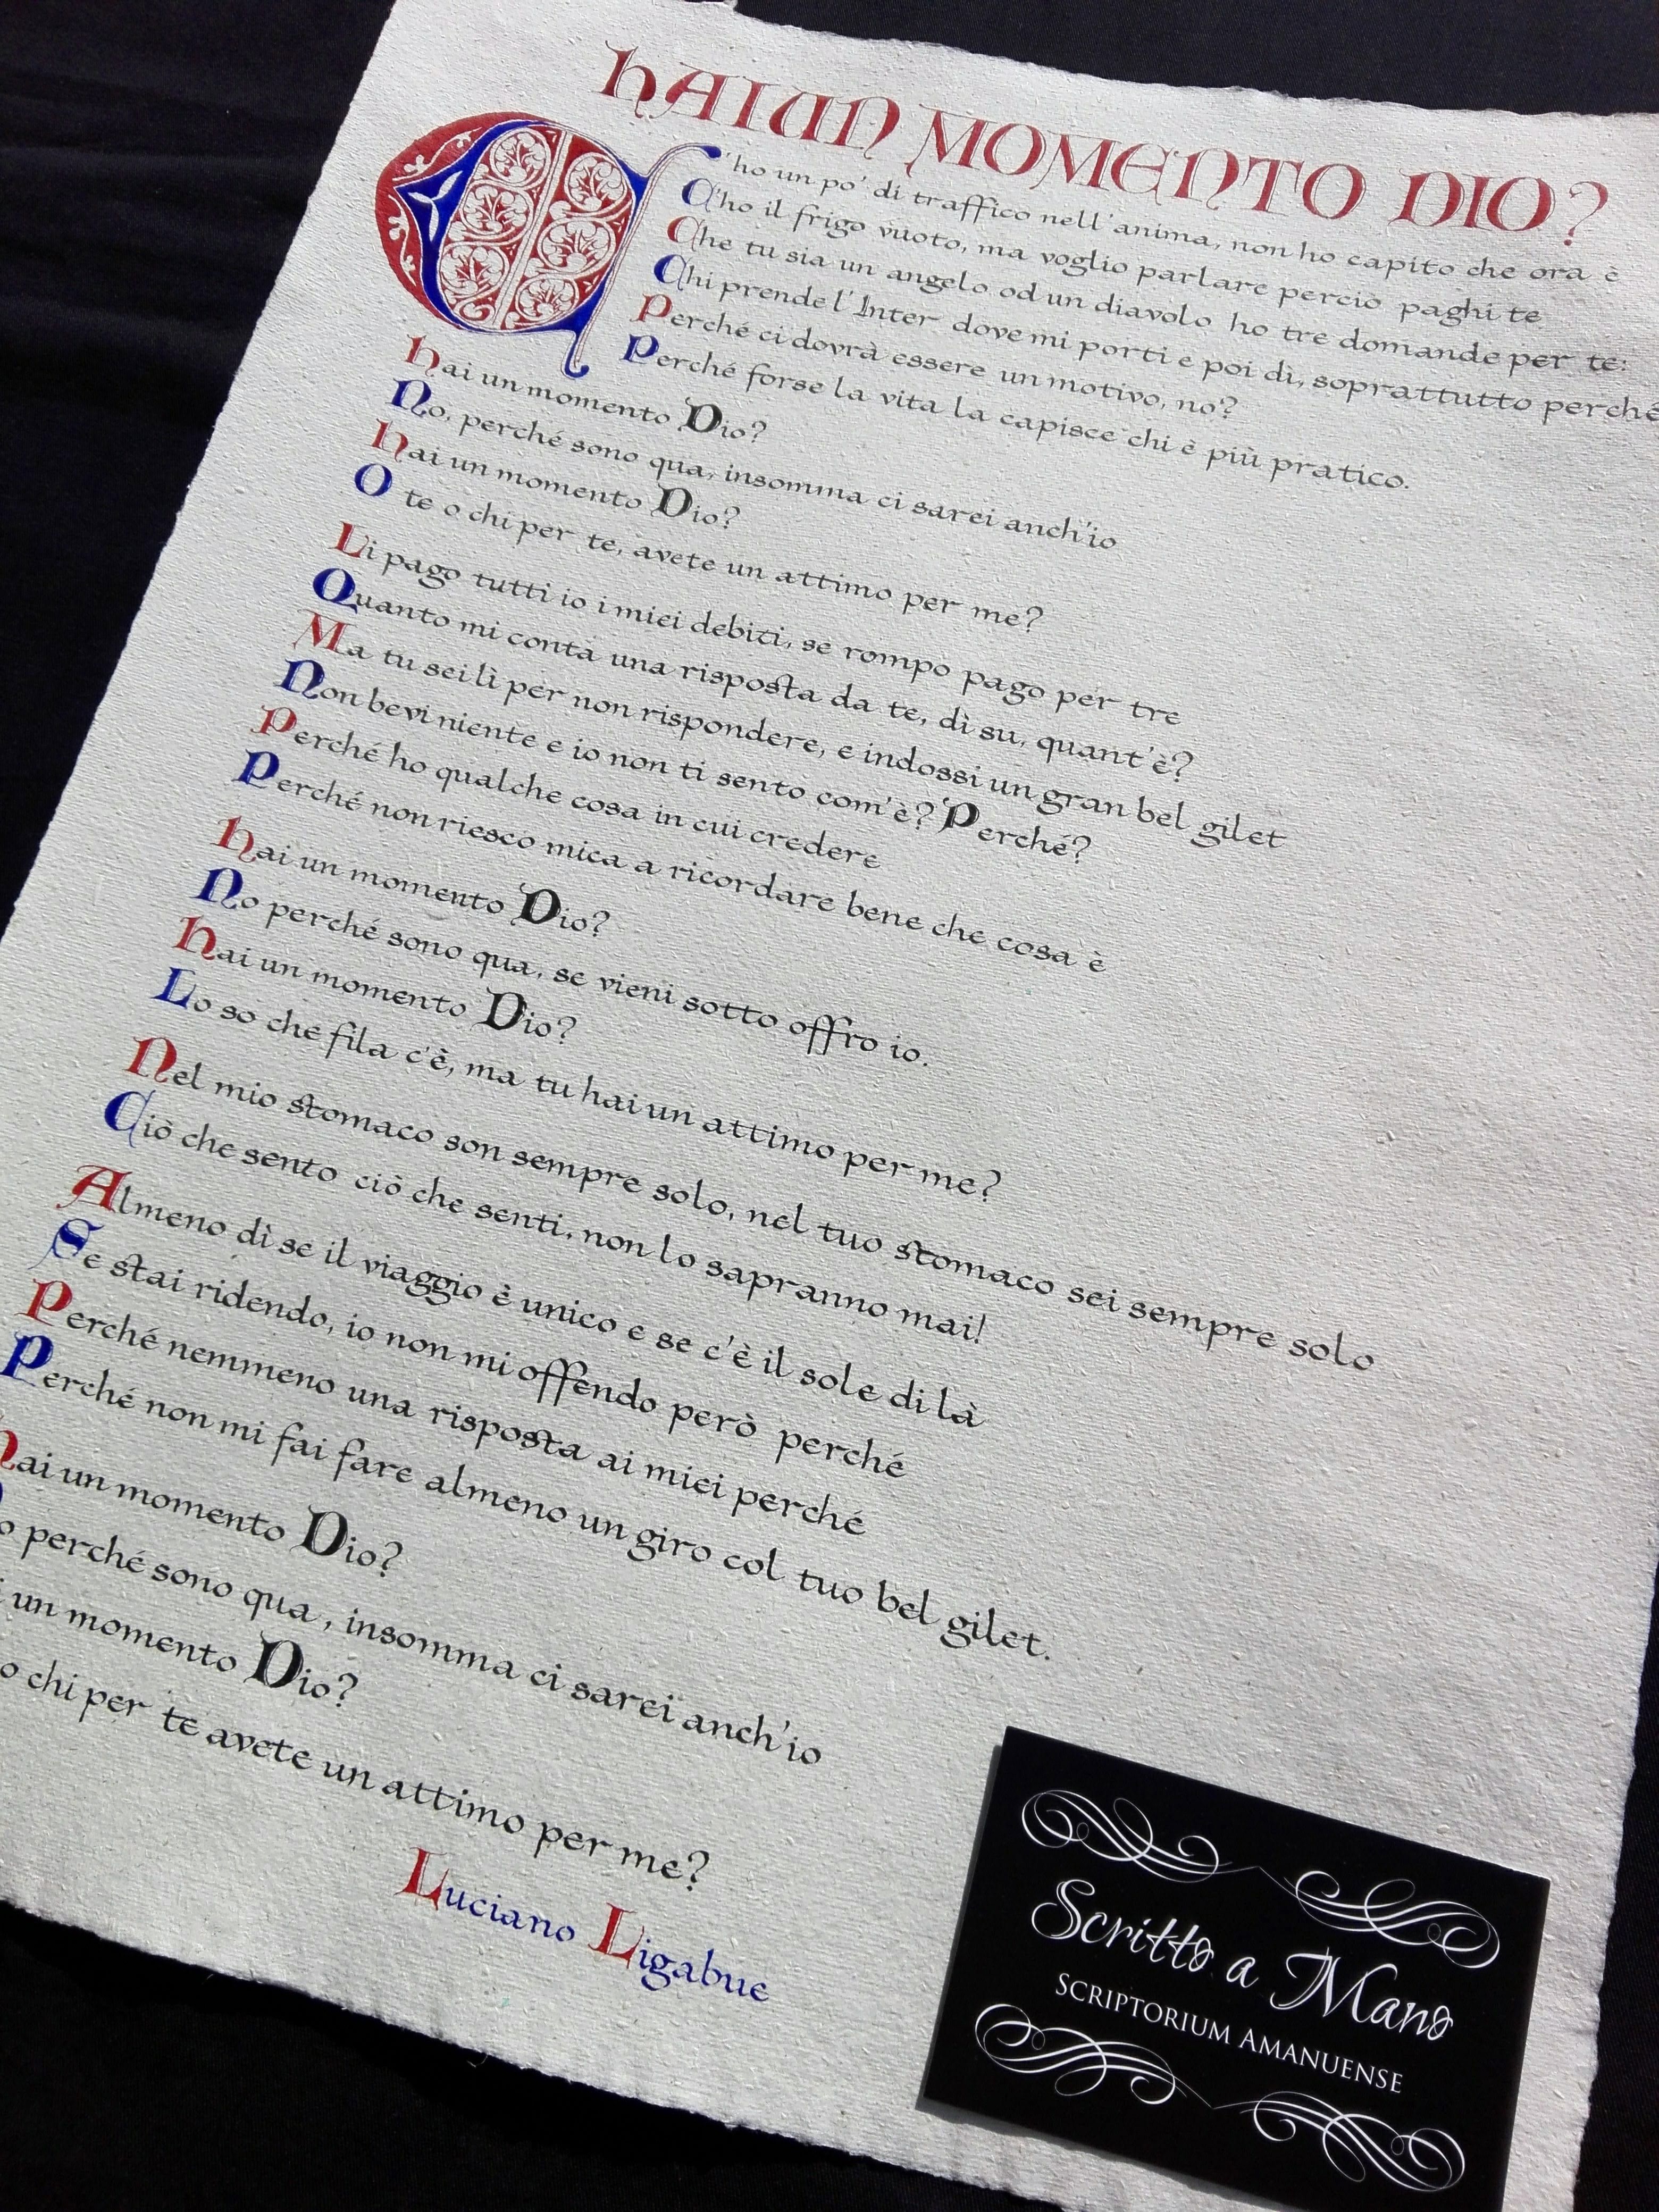 HAI UN MOMENTO DIO?
C'ho un po' di traffico nell'anima, non ho capito che ora è
C'ho il frigo vuoto, ma voglio parlare perciò paghi te
Che tu sia un angelo od un diavolo ho tre domande per te:
Chi prende l'Inter dove mi porti e poi dì, soprattutto perché
Perché ci dovrà essere un motivo, no?
Perché forse la vita la capisce chi è più pratico.
Hai un momento Dio?
No, perché sono qua, insomma ci sarei anch'io
Hai un momento Dio?
O te o chi per te, avete un attimo per me?
Li pago tutti io i miei debiti, se rompo pago per tre
Quanto mi conta una risposta da te, dì su, quant'è?
Ma tu sei lì per non rispondere, e indossi un gran bel gilet
Non bevi niente e io non ti sento com'è? Perché?
Perché ho qualche cosa in cui credere
Perché non riesco mica a ricordare bene che cosa è
Hai un momento Dio?
No perché sono qua, se vieni sotto offro io.
Hai un momento Dio?
Lo so che fila c'è, ma tu hai un attimo per me?
Nel mio stomaco son sempre solo, nel tuo stomaco sei sempre solo
Ciò che sento ciò che senti, non lo sapranno mai!
Almeno dì se il viaggio è unico e se c'è il sole di là
Se stai ridendo, io non mi offendo però perché
Perché nemmeno una risposta ai miei perché
Perché non mi fai fare almeno un giro col tuo bel gilet.
Hai un momento Dio?
o perché sono qua, insomma ci sarei anch'io
i un momento Dio?
o chi per te avete un attimo per me?
Luciano Ligabue
Scritto a Mano
SCRIPTORIUM AMANUENSE